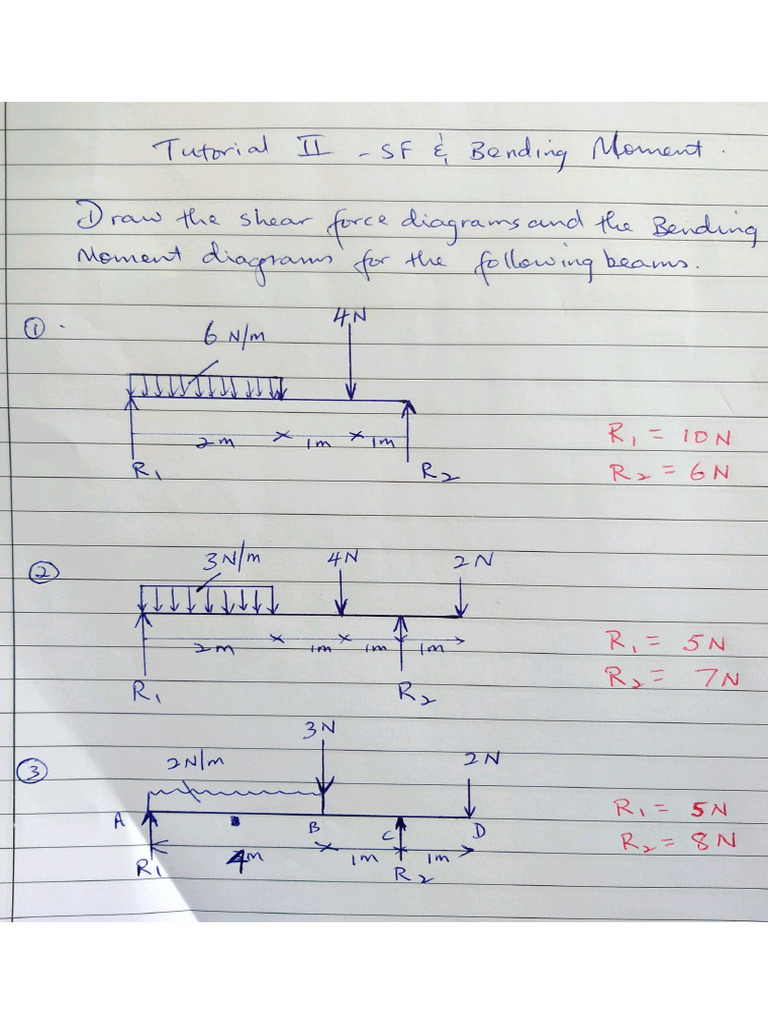 Tutorial II - SF & Bending Moment.
Draw the shear force diagrams and the Bending
Moment diagrams for the following beams.
① 4N
6 N/m
2m 1m 1m
R₁ R₂
R₁ = 10N
R₂ = 6N
② 3N/m 4N 2N
2m 1m 1m 1m
R₁ R₂
R₁ = 5N
R₂ = 7N
3N
③ 2N/m 2N
A B C D
4m 1m 1m
R₁ R₂
R₁ = 5N
R₂ = 8N